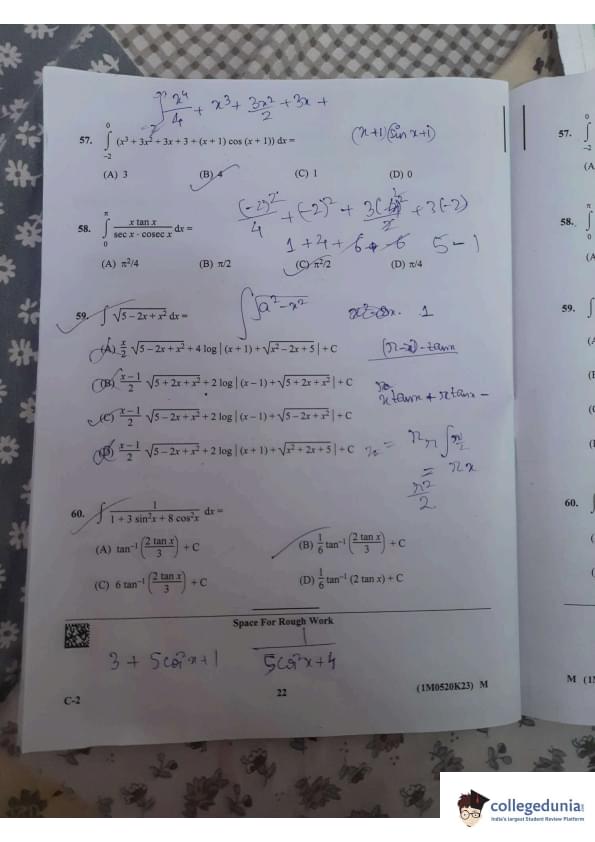 x⁴/4 + x³ + 3x²/2 + 3x +
57. ∫₋₂⁰ (x³ + 3x² + 3x + 3 + (x + 1) cos (x + 1)) dx =
(x+1)(sin x+1)
(A) 3 (B) 4 (C) 1 (D) 0
(-2)²/4 + (-2)² + + 3(-2)
58. ∫₀^π x tan x / sec x · cosec x dx =
1 + 4 + 6 - 6 5 - 1
(A) π²/4 (B) π/2 (C) π²/2 (D) π/4
59. ∫ √5 – 2x + x² dx =
∫√a² - x² 1
(A) x/2 √5 – 2x + x² + 4 log | (x + 1) + √x² – 2x + 5 | + C
(B) x – 1/2 √5 + 2x + x² + 2 log | (x – 1) + √5 + 2x + x² | + C
x tan x + π tan x -
(C) x – 1/2 √5 – 2x + x² + 2 log | (x – 1) + √5 – 2x + x² | + C
(D) x – 1/2 √5 – 2x + x² + 2 log | (x + 1) + √x² + 2x + 5 | + C
= πx
π²/2
60. ∫ 1 / 1 + 3 sin²x + 8 cos²x dx =
(A) tan⁻¹ (2 tan x/3) + C (B) 1/6 tan⁻¹ (2 tan x/3) + C
(C) 6 tan⁻¹ (2 tan x/3) + C (D) 1/6 tan⁻¹ (2 tan x) + C
Space For Rough Work
3 + 5cos²x + 1 1/5cos²x + 4
C-2 22 (1M0520K23) M
57.
(A
58.
59.
60.
M (1M
collegedunia
India's largest Student Review Platform